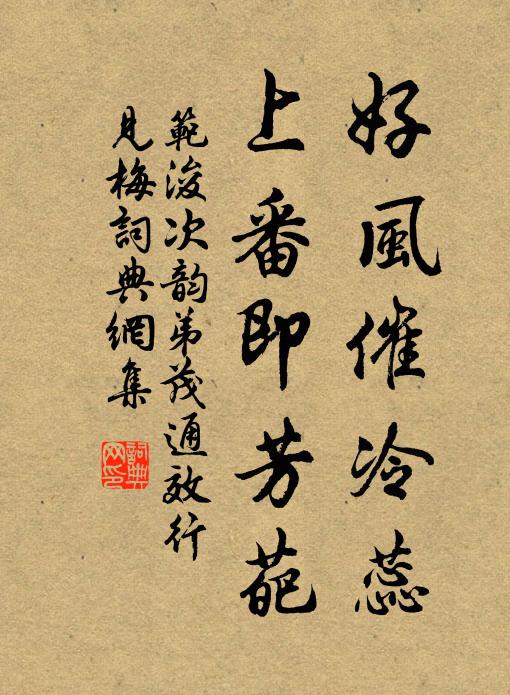 好風催冷蕊
上番即芳葩
範浚次韵弟茂通效行
見梅詞典網集
詞典
网印